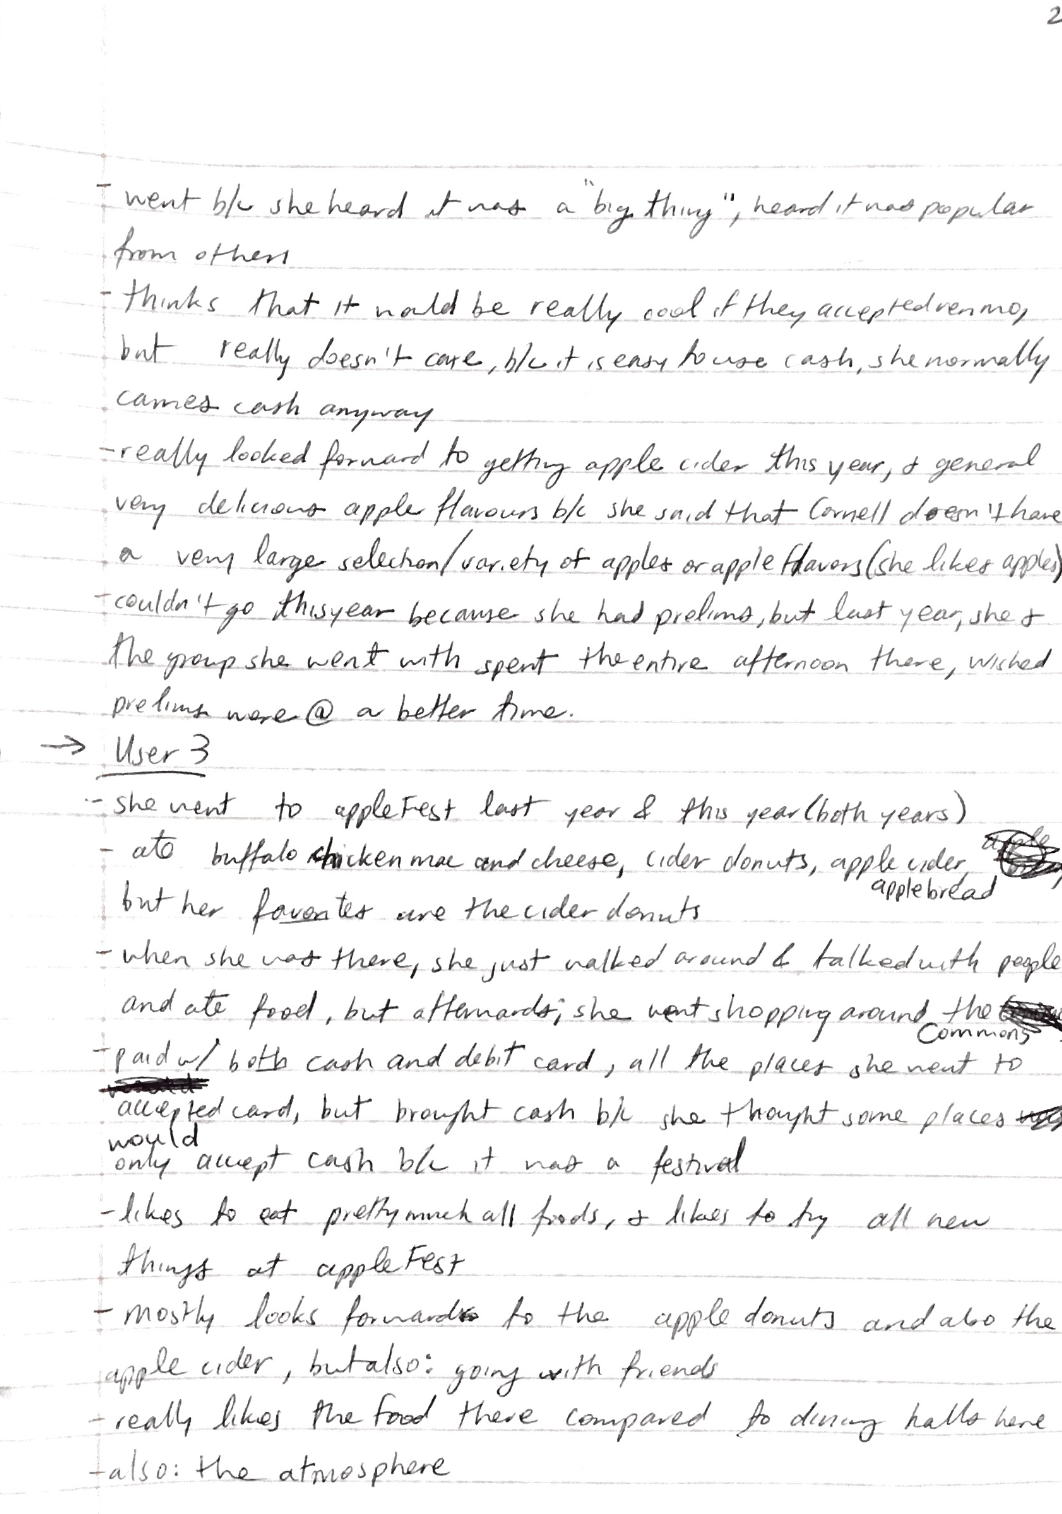 2
- went b/c she heard it was a "big thing", heard it was popular
from others
- thinks that it would be really cool if they accepted venmo,
but really doesn't care, b/c it is easy to use cash, she normally
carries cash anyway
- really looked forward to getting apple cider this year, & general
very delicious apple flavours b/c she said that Cornell doesn't have
a very large selection/variety of apples or apple flavors (she likes apples)
- couldn't go this year because she had prelims, but last year, she &
the group she went with spent the entire afternoon there, wished
prelims were @ a better time.
→ User 3
- she went to appleFest last year & this year (both years)
- ate buffalo chicken mac and cheese, cider donuts, apple cider,
apple bread
but her favorites are the cider donuts
- when she was there, she just walked around & talked with people
and ate food, but afterwards, she went shopping around the
Commons
- paid w/ both cash and debit card, all the places she went to
accepted card, but brought cash b/c she thought some places
would
only accept cash b/c it was a festival
- likes to eat pretty much all foods, & likes to try all new
things at appleFest
- mostly looks forward to the apple donuts and also the
apple cider, but also: going with friends
- really likes the food there compared to dining halls here
- also: the atmosphere